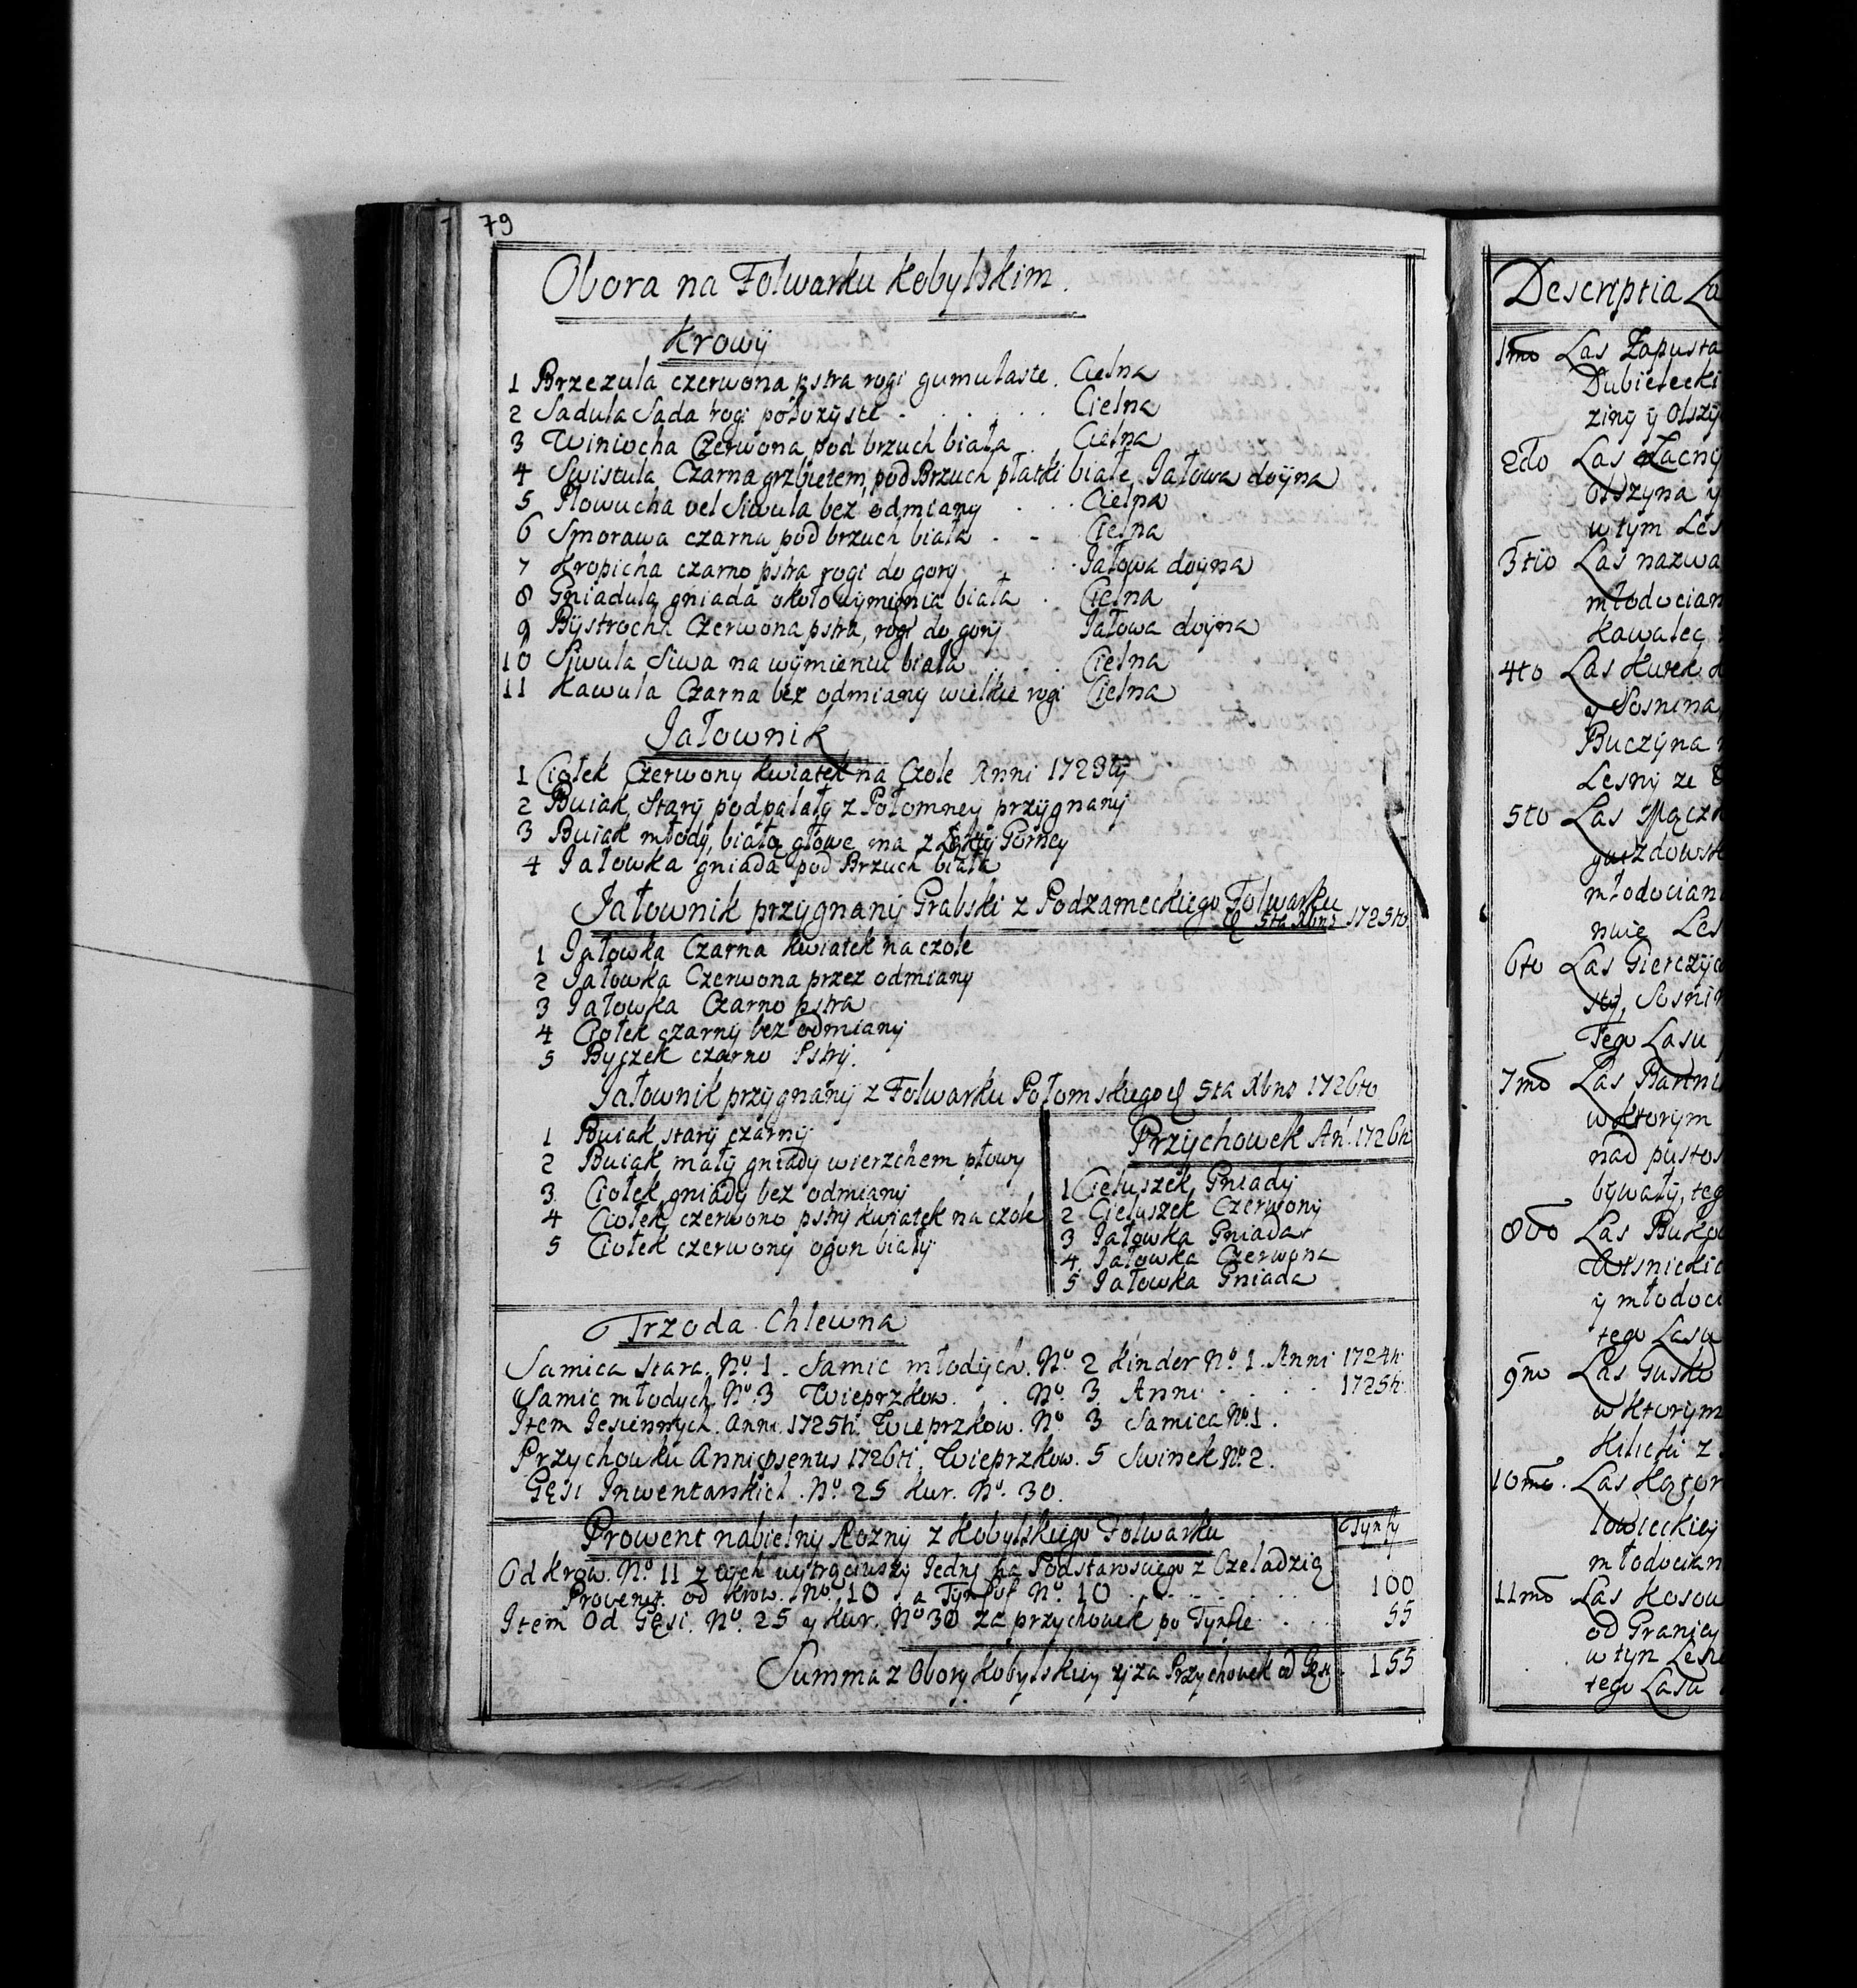 79
Obora na Folwarku Kobylskim.
Krowÿ
1 Brzezula czerwona pstra rogi gumulaste. Cielna
2 Sadula Sada rogi położyste . . . . . . Cielna
3 Winiocha Czerwona pod brzuch biała . . Cielna
4 Swistula Czarna grzbietem, pod Brzuch płatki białe Jałowa doÿna
5 Płowucha vel Siwula bez odmiany . . . Cielna
6 Smorawa czarna pod brzuch biała . - Cielna
7 Kropicha czarno pstra rogi do gory . . . Jałowa doÿna
8 Gniadula gniada około wÿmienia biała . Cielna
9 Bÿstrocha Czerwona pstra, rogi do gorÿ Jałowa doÿna
10 Siwula Siwa na wÿmieniu biała . . . Cielna
11 Kawula Czarna bez odmianÿ wielkie rogi Cielna
Jałownik
1 Ciołek Czerwony kwiatek na Czole Anni 1723tÿ
2 Buiak Starÿ podpalałÿ z Połomney przÿgnanÿ
3 Buiak młodÿ, białą głowę ma z Gorney
4 Jałowka gniada pod Brzuch biała
Jałownik przÿgnanÿ Grabski z Podzameckiego Folwarku
5ta Xbris 1725to
1 Jałowka Czarna kwiatek na czole
2 Jałowka Czerwona przez odmiany
3 Jałowka Czarno pstra
4 Ciołek czarnÿ bez odmianÿ
5 Byczek czarno Pstrÿ.
Jałownik przÿgnanÿ z Folwarku Połomskiego 5ta Xbris 1726to
1 Buiak starÿ czarnÿ
2 Buiak małÿ gniadÿ wierzchem płowy
3 Ciołek gniadÿ bez odmianÿ
4 Ciołek czerwono pstrÿ kwiatek na czole
5 Ciołek czerwonÿ ogon białÿ
Przÿchowek An: 1726ti
1 Cieluszek Gniadÿ
2 Cieluszek Czerwonÿ
3 Jałowka Gniada
4 Jałowka Czerwona
5 Jałowka Gniada
Trzoda Chlewna
Samica stara. No. 1. Samic młodÿch. No. 2 Kinder No. 1. Anni 1724ti
Samic młodych No. 3 Wieprzkow. . . No. 3. Anni . . . . 1725ti
Item Jesiennÿch. Anni. 1725ti. Wieprzkow. No 3 Samica No 1.
Przychowku Anni psentis 1726ti. Wieprzkow. 5 Swinek No. 2.
Gęsi Inwentarskich. No. 25 Kur. No. 30.
Prowent nabielnÿ Roznÿ z Kobÿlskiego Folwarku Tynfy
Od Krow. No. 11 z tÿch wÿtrąciwszÿ Jednę na Podstarosciego z Czeladzią
Provenit od Krow. No. 10 a Tynfof No. 10 . . . . . . . 100
Item Od Gęsi. No. 25 y Kur. No 30 za przychowek po Tynfie . . . 55
Summa z Oborÿ Kobÿlskieÿ ÿ za Przychowek od Gęsi. 155
Descriptia La
1mo Las Zapusta
Dubielecki
ziny ÿ Olszÿ
2do Las Łacny
Olszyna y
w tÿm Les
3tio Las nazwa
młodocian
Kawałec
4to Las Hurek
y Sosnina,
Buczÿna
Lesnÿ ze
5to Las
młodocian
Les
6to Las Gierczÿc
Sosnin
Tego Lasu
7mo Las
w ktorÿm
nad pustos
bÿwałÿ, teg
8vo Las Buko
ÿ młodoc
tego Lasu
9no Las Gusko
w ktorÿm
Kilicki z
10mo. Las
łowieckieÿ
młodocian
11mo Las Kosow
od Granicÿ
w tÿn Lesie
tego Lasu